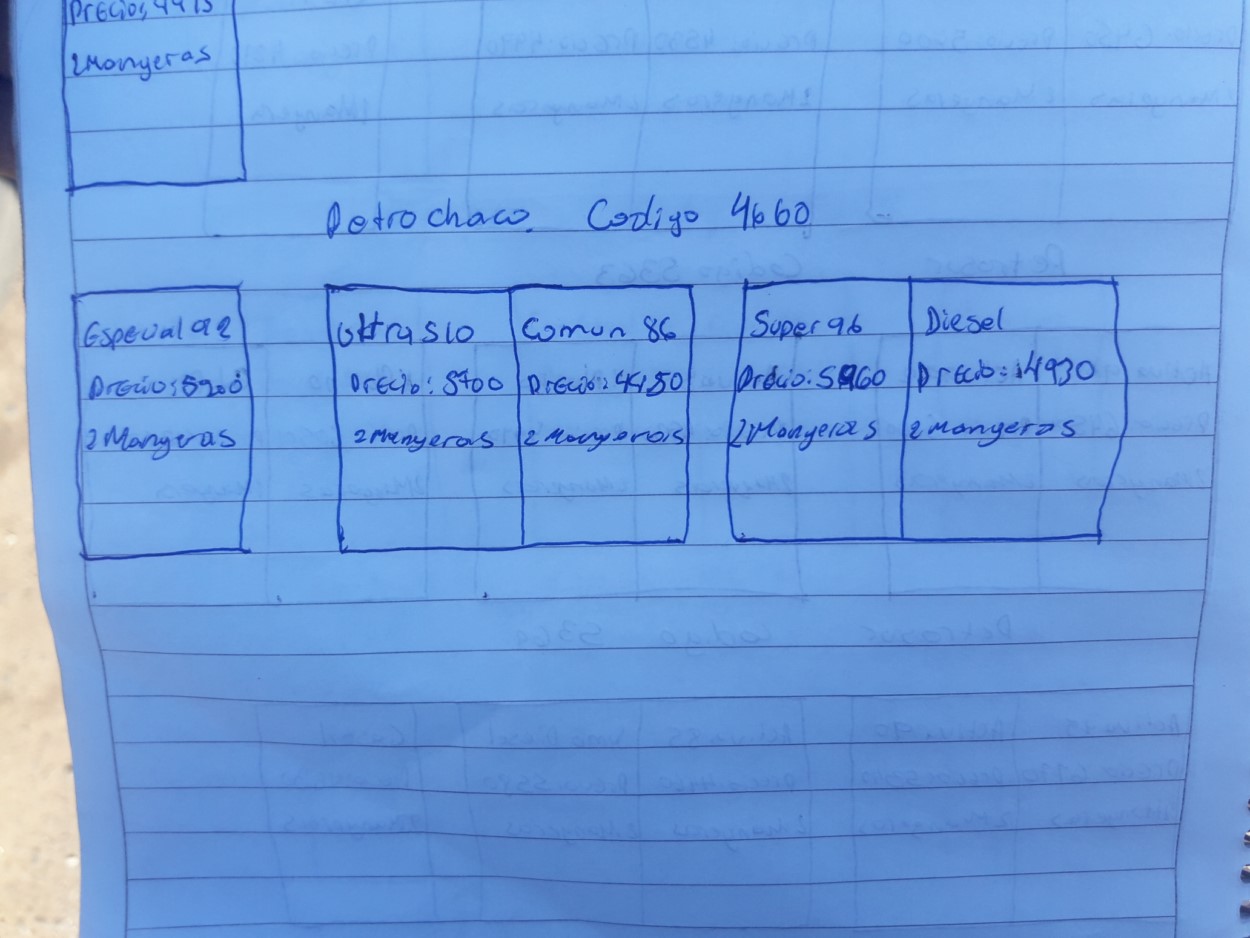 Precio: 4475
2 Mangeras
Petrochaco. Codigo 4660
Especial 92
Precio: 5200
2 Mangeras
Ultra S10
Precio: 5700
2 Mangeras
Comun 86
Precio: 4450
2 Mangeras
Super 96
Precio: 5960
2 Mangeras
Diesel
Precio: 4930
2 Mangeras